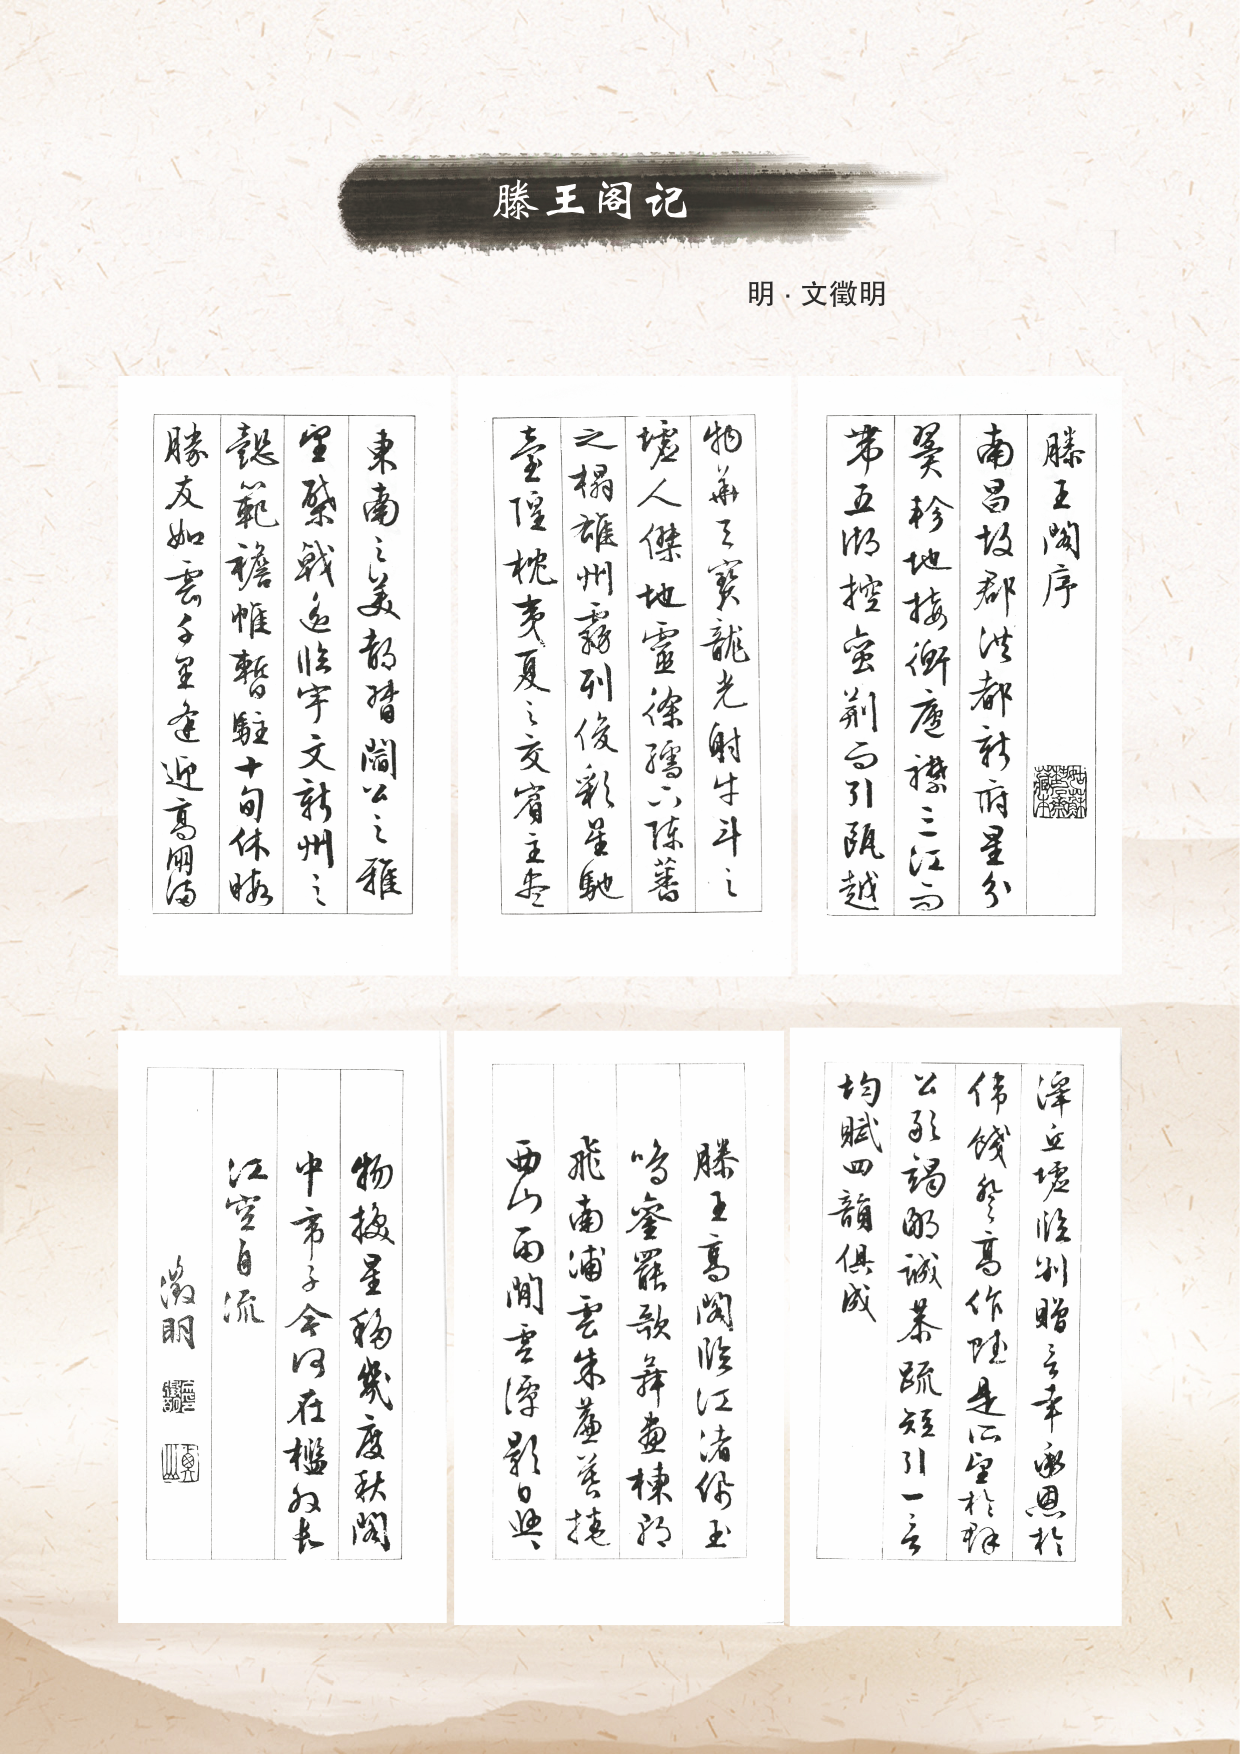 滕王阁记
明·文徵明
滕王閣序
南昌故郡洪都新府星分
翼軫地接衡廬襟三江而
帶五湖控蛮荆而引甌越
物華天寶龍光射牛斗之
墟人傑地靈徐孺下陳蕃
之榻雄州霧列俊彩星馳
臺隍枕夷夏之交賓主盡
東南之美都督閻公之雅
望棨戟遥臨宇文新州之
懿範襜帷暫駐十旬休暇
勝友如雲千里逢迎高朋滿
澤丘墟臨别贈言幸承恩於
偉餞登高作賦是所望於群
公敢竭鄙誠恭疏短引一言
均賦四韻俱成
滕王高閣臨江渚佩玉
鳴鑾罷歌舞畫棟朝
飛南浦雲朱簾暮捲
西山雨閒雲潭影日與
物換星移幾度秋閣
中帝子今何在檻外長
江空自流
徵明